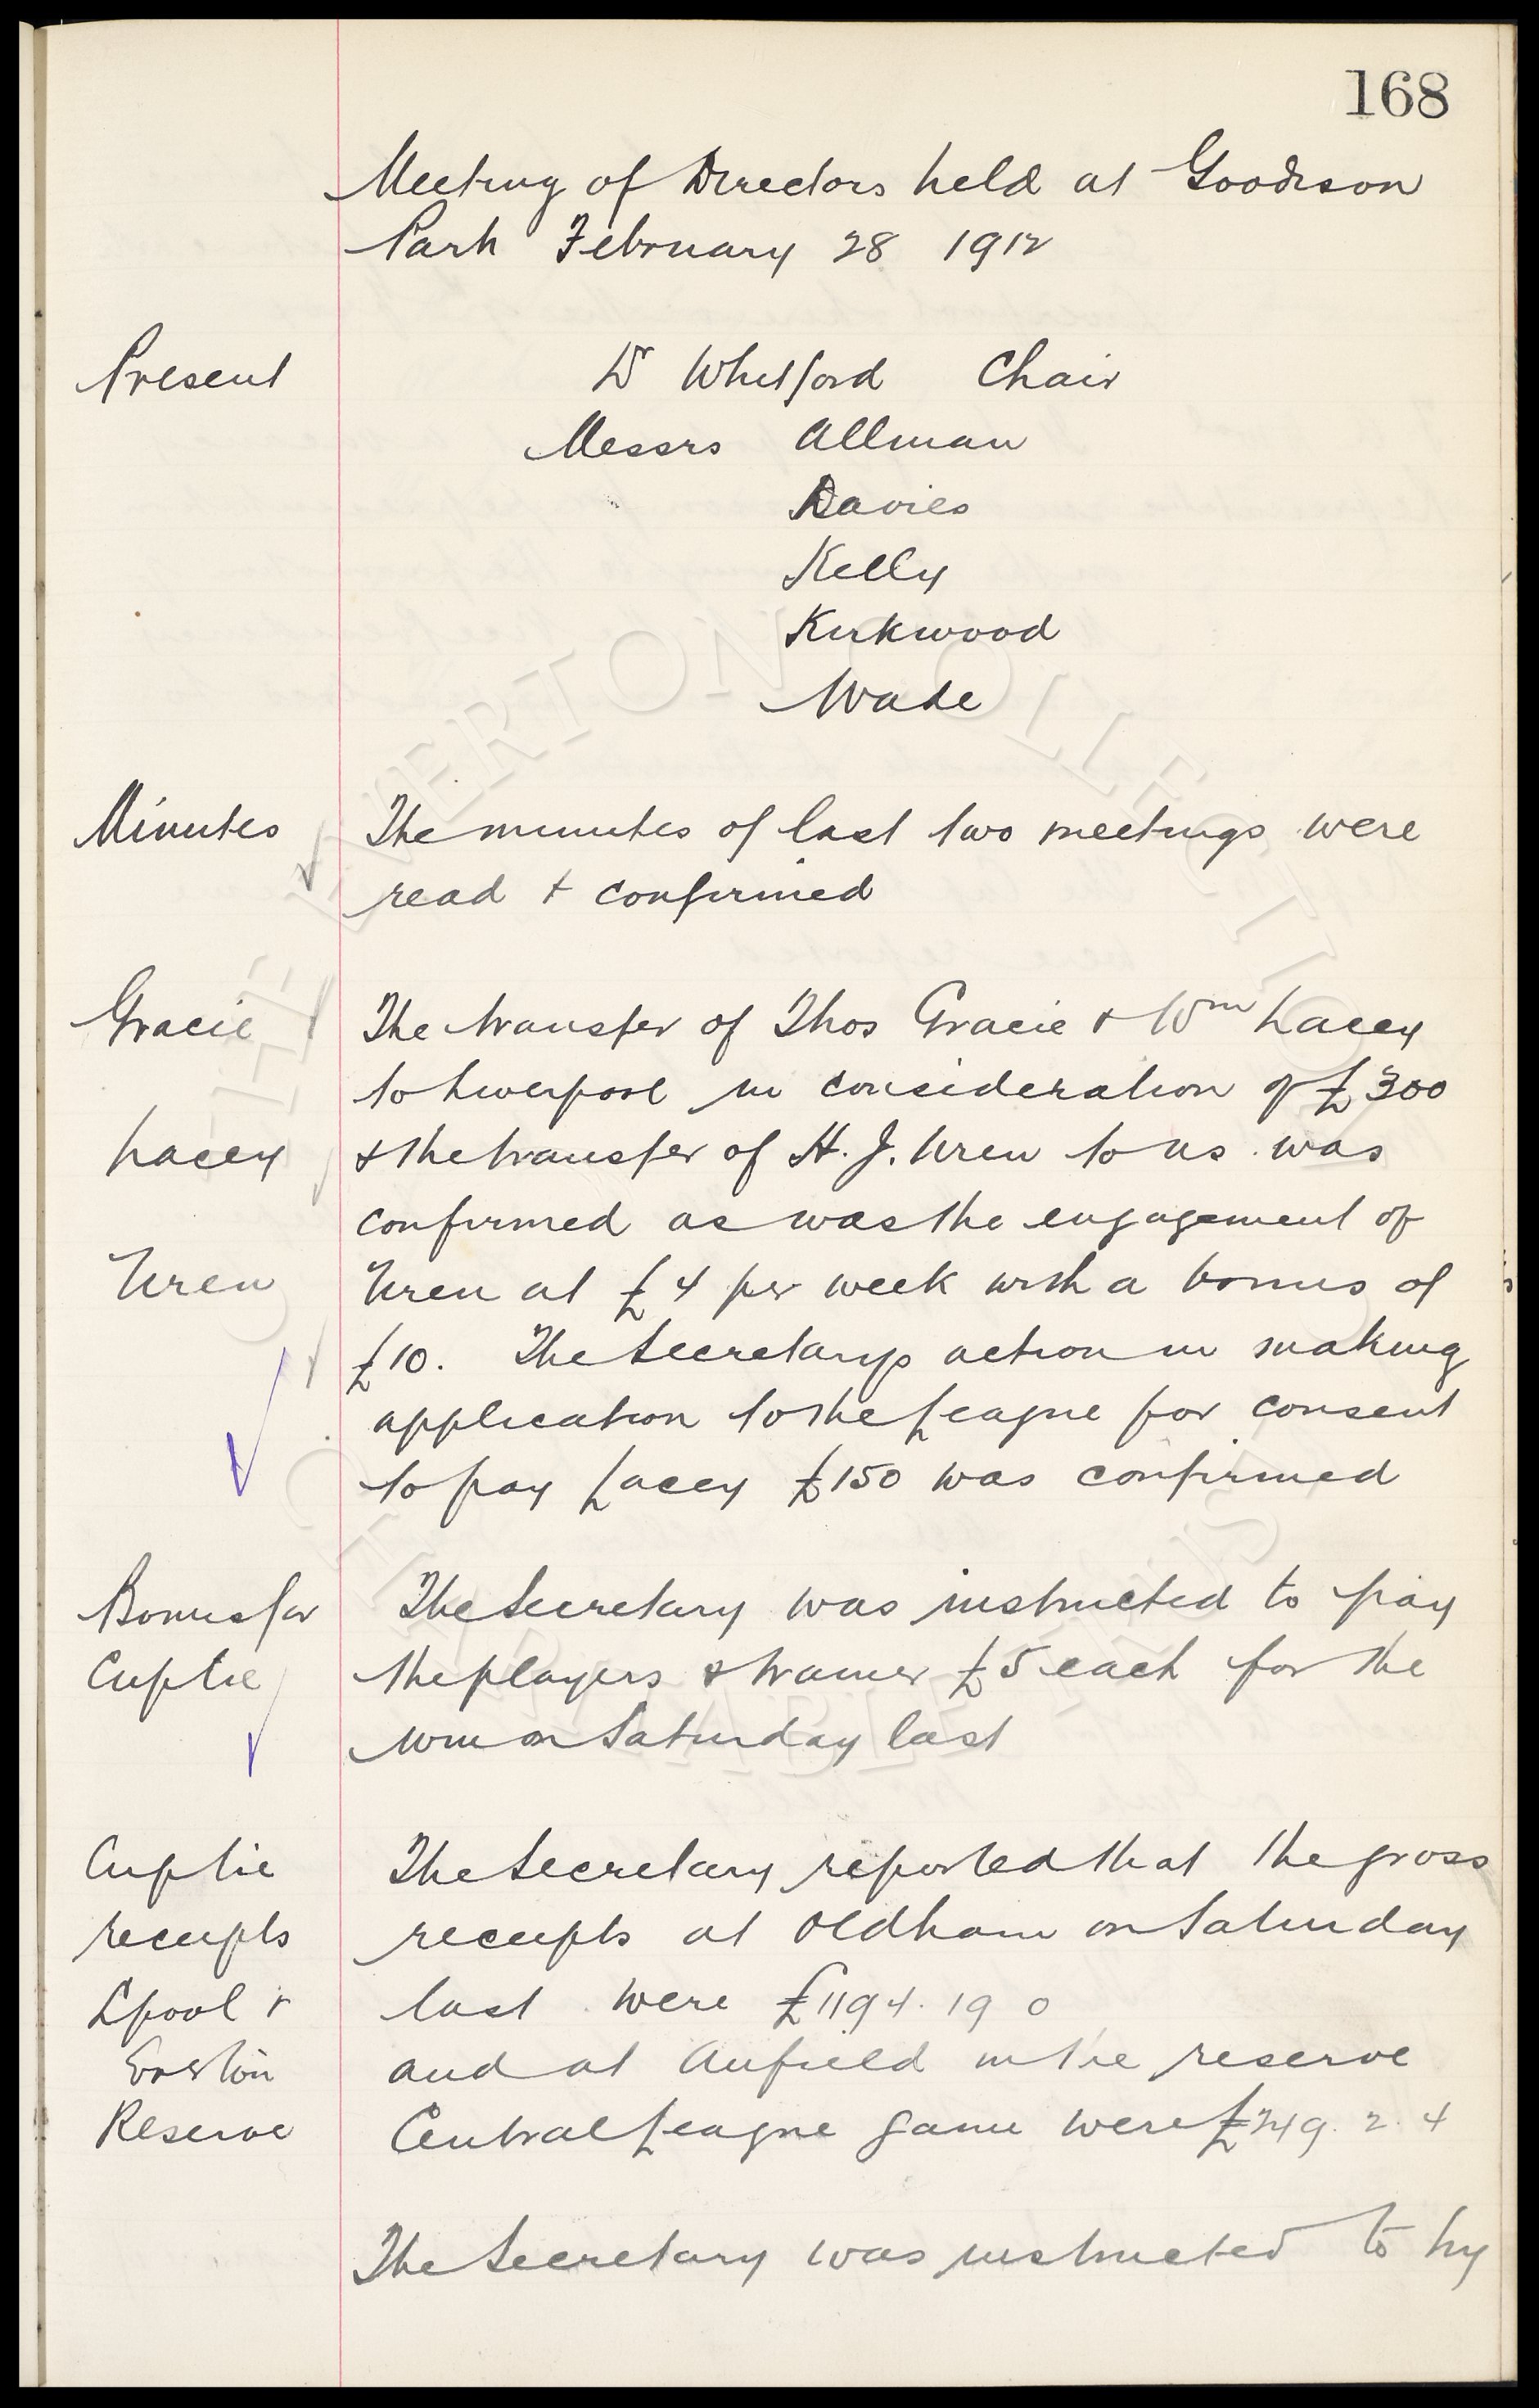 168
Meeting of Directors held at Goodison
Park February 28 1912
Present
Dr Whitford Chair
Messrs Allman
Davies
Kelly
Kirkwood
Wade
Minutes
The minutes of last two meetings were
read & confirmed
Gracie
The transfer of Thos Gracie & Wm Lacey
to Liverpool in consideration of £300
Lacey
& the transfer of H. J. Uren to us was
confirmed as was the engagement of
Uren
Uren at £4 per week with a bonus of
£10. The Secretarys action in making
application to the League for consent
to pay Lacey £150 was confirmed
Bonus for
The Secretary was instructed to pay
Cuptie
the players & trainer £5 each for the
win on Saturday last
Cuptie
The Secretary reported that the gross
receipts
receipts at Oldham on Saturday
Lpool &
last were £1194. 19 0
Everton
and at Anfield in the reserve
Reserve
Central League game were £249. 2. 4
The Secretary was instructed to try
THE EVERTON COLLECTION
CHARITABLE TRUST